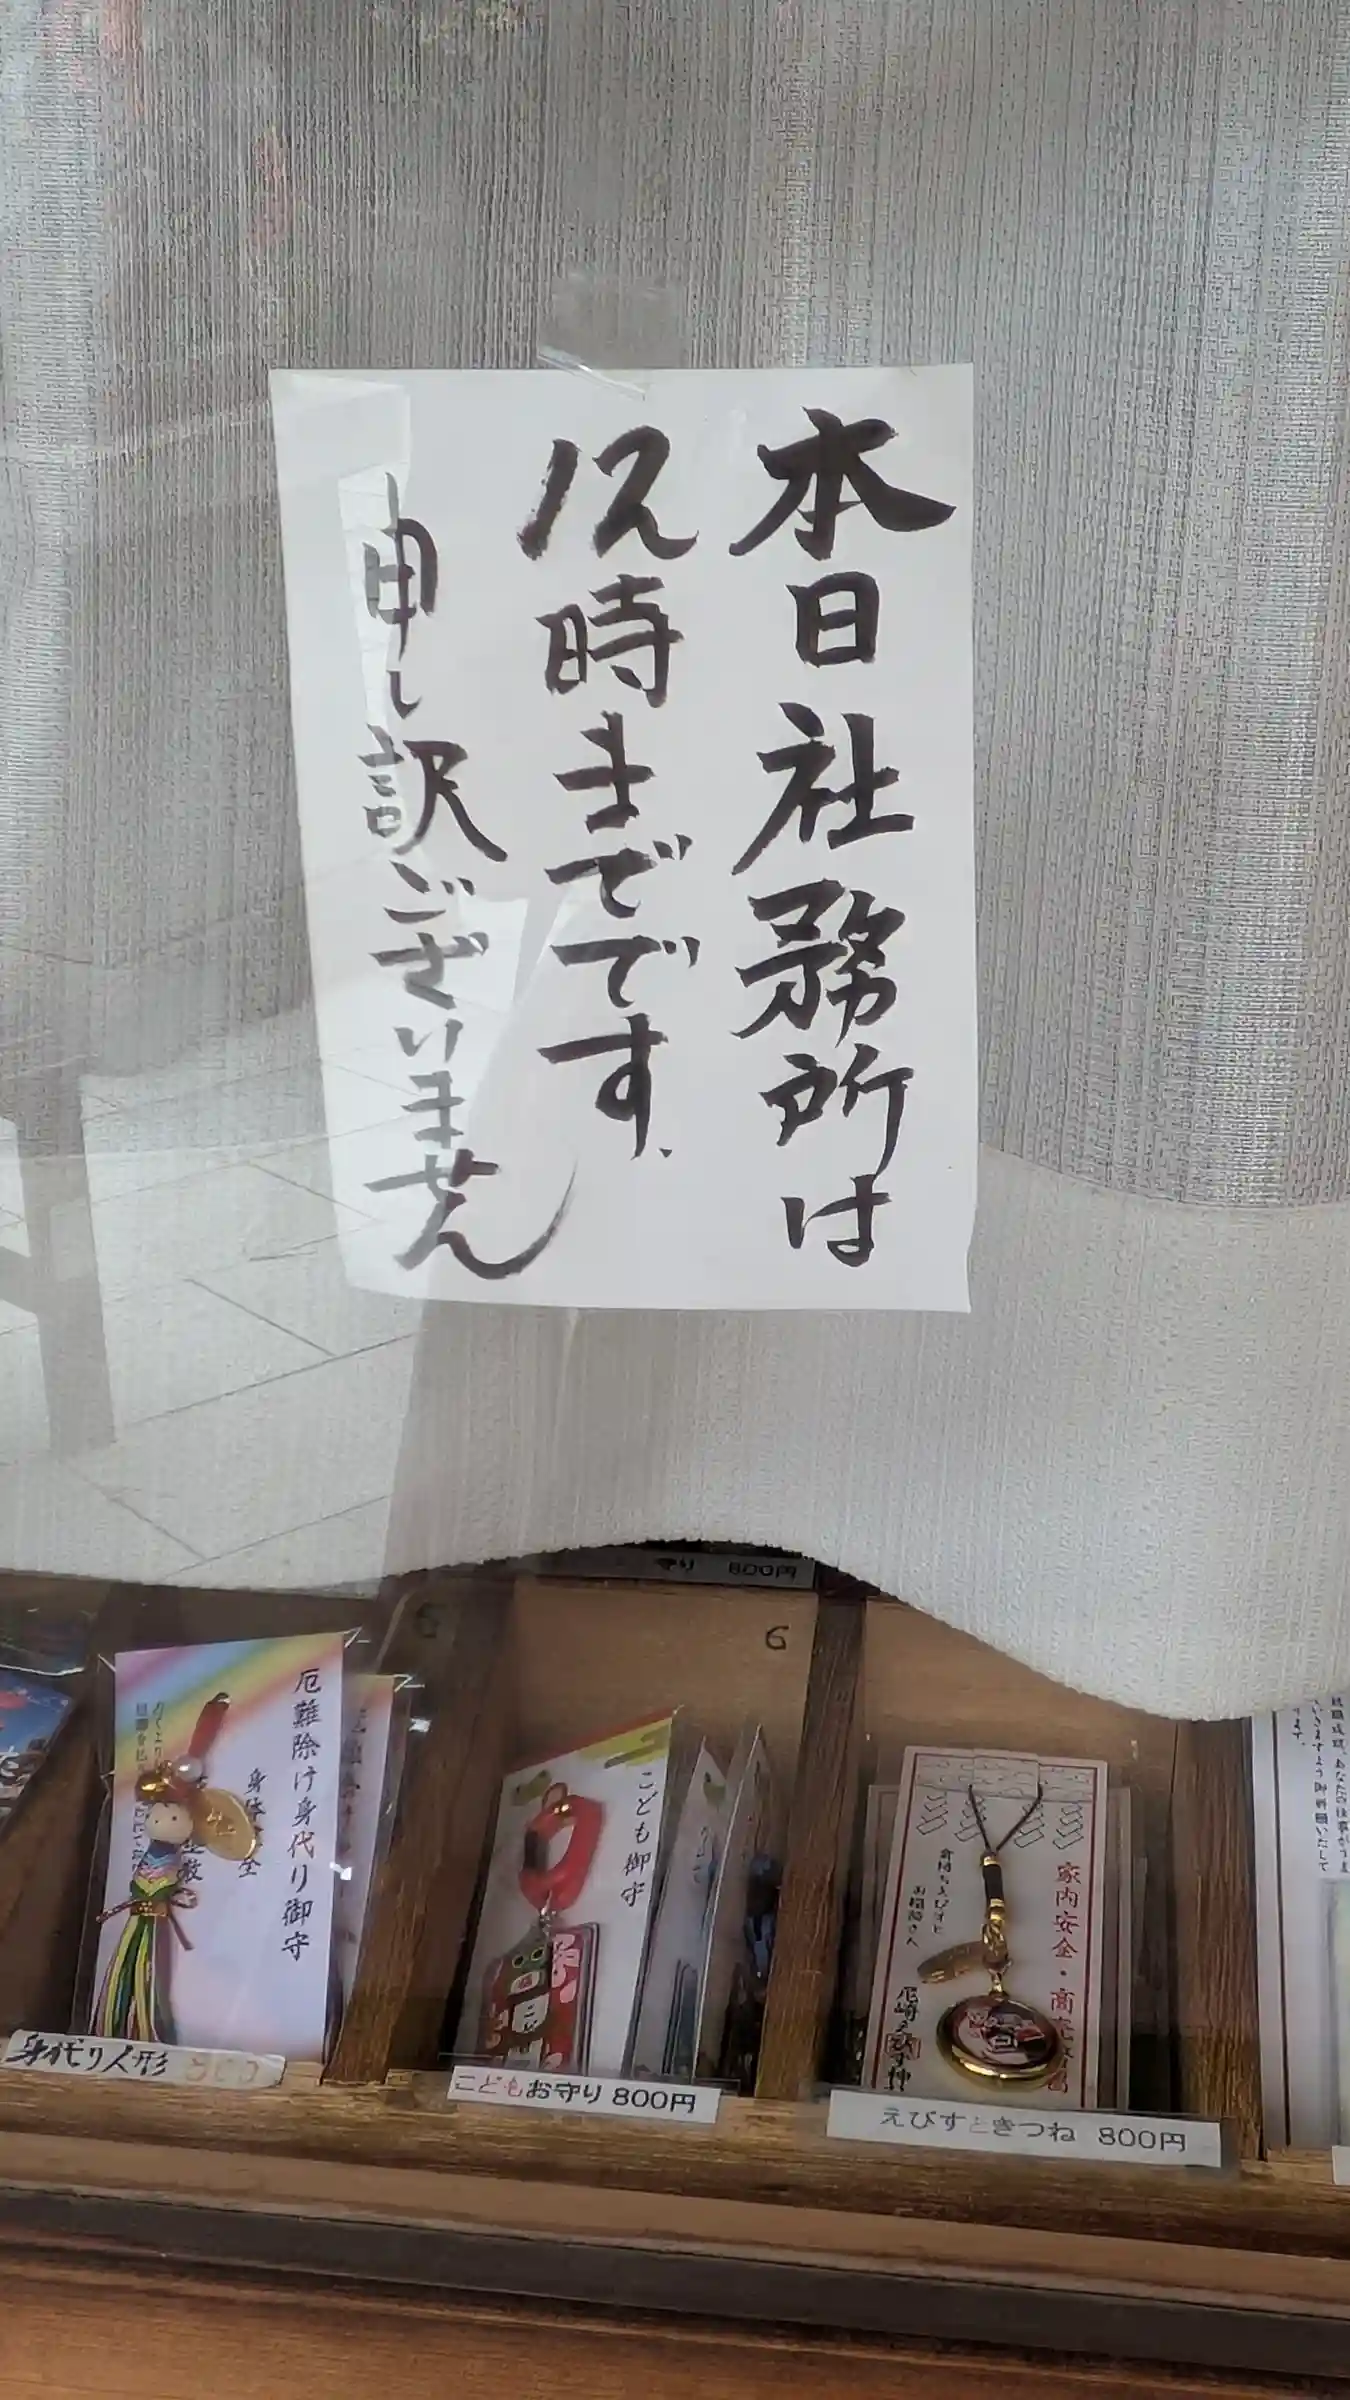 本日社務所は
12時までです.
申し訳ございません
守り 800円
5
6
厄難除け身代り御守
身代り人形
こども御守
こどもお守り 800円
家内安全・商売繁昌
尼崎えびす神
えびすときつね 800円